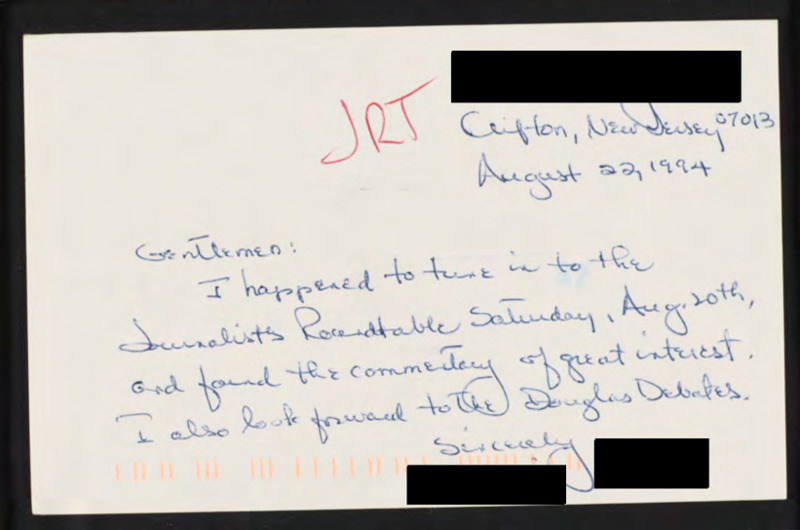 JRT
Clifton, New Jersey 07013
August 22, 1994
Gentlemen:
I happened to tune in to the
Journalists Roundtable Saturday, Aug. 20th,
and found the commentary of great interest.
I also look forward to the Douglas Debates.
Sincerely